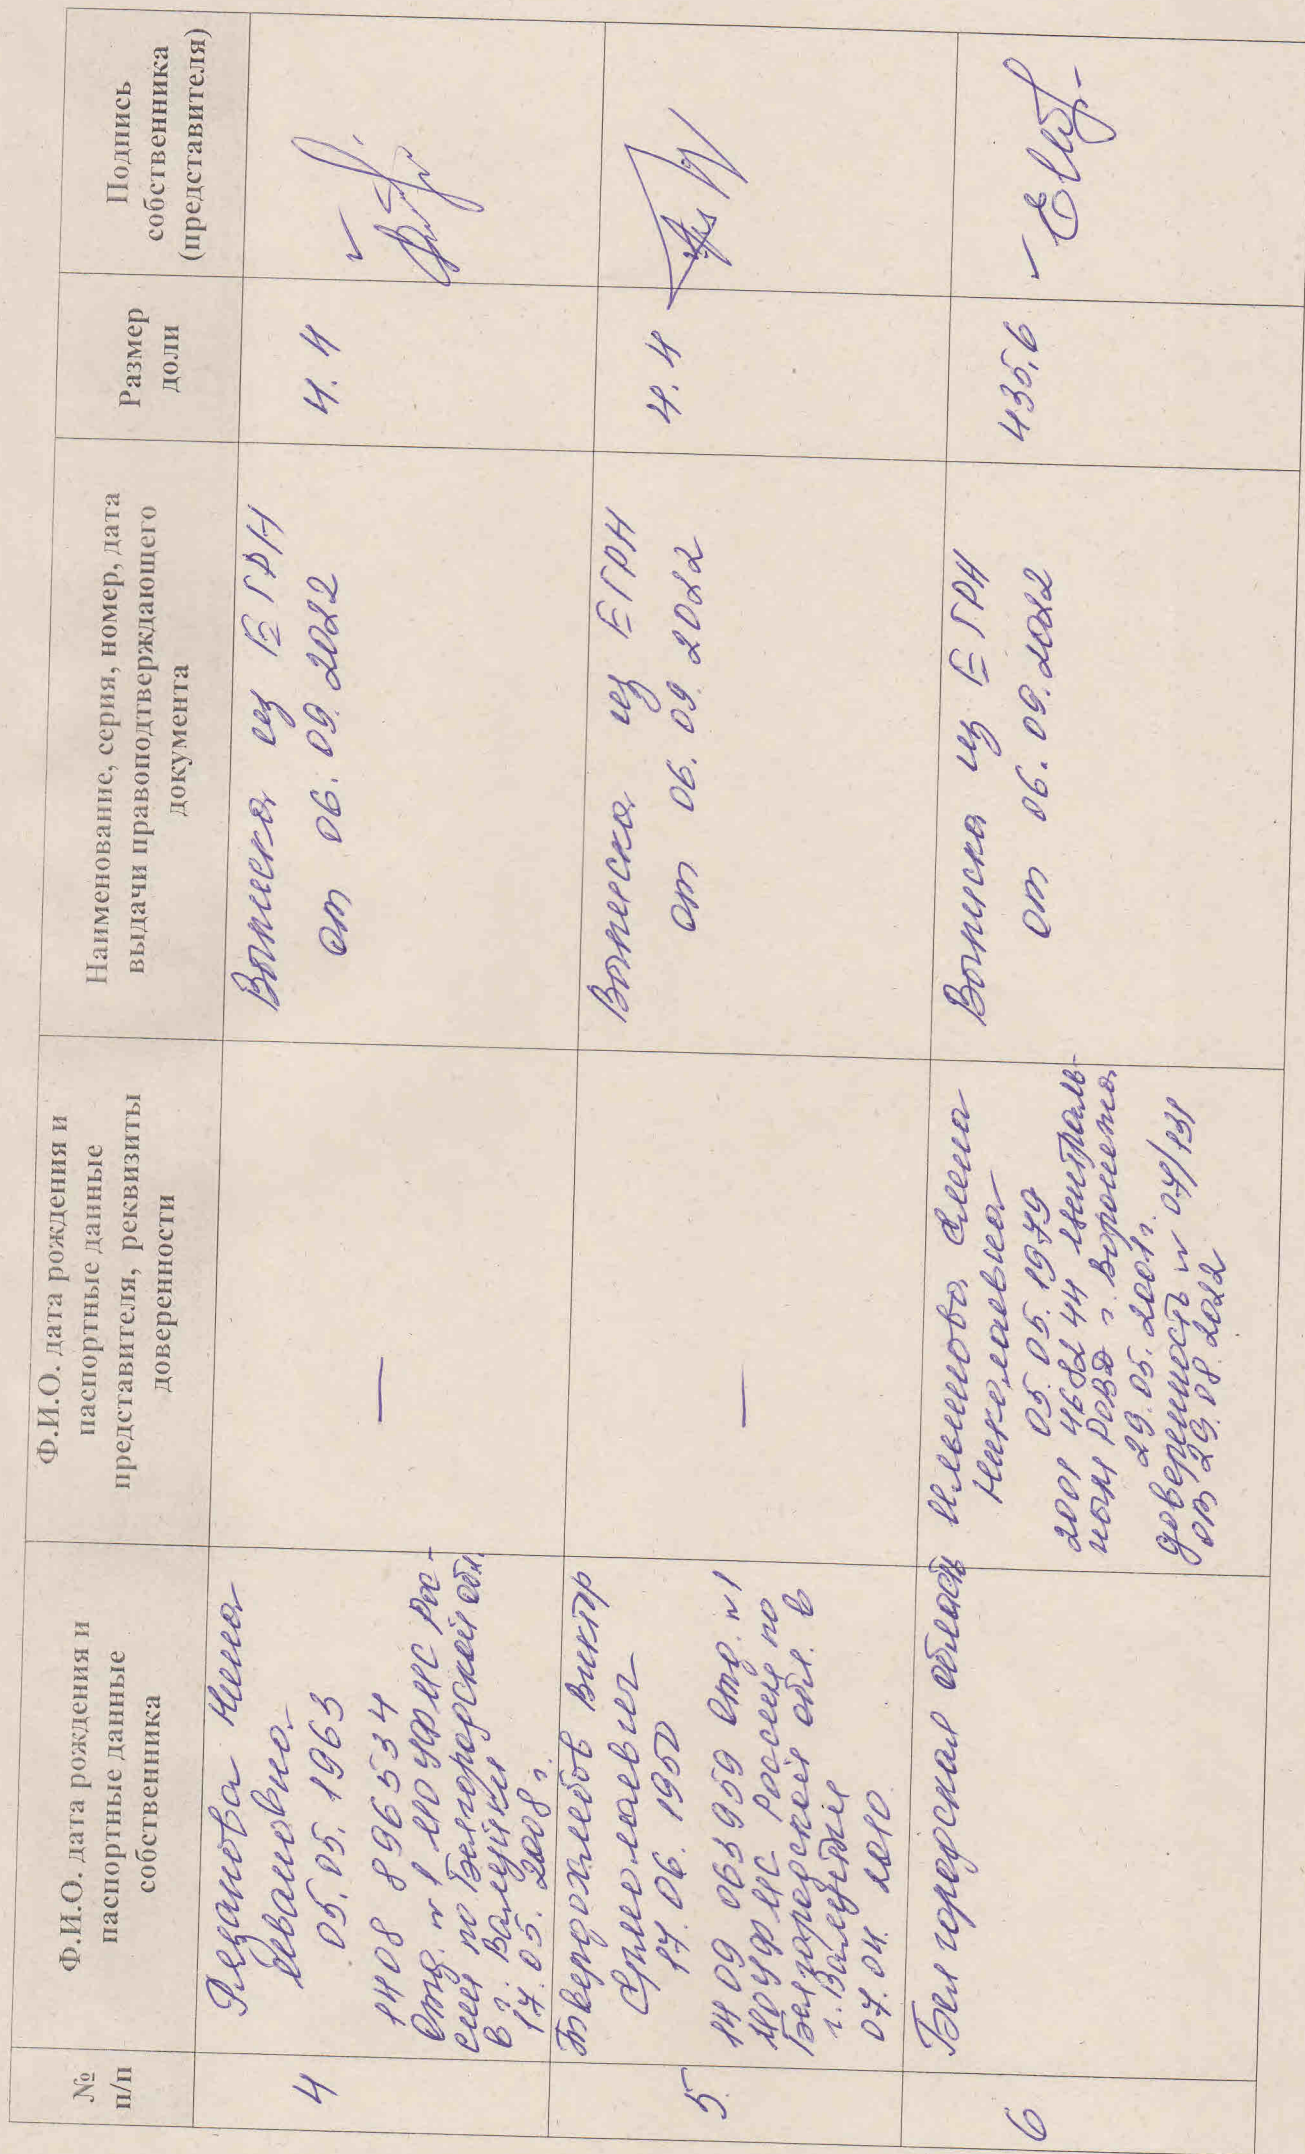 №
п/п
Ф.И.О. дата рождения и
паспортные данные
собственника
Ф.И.О. дата рождения и
паспортные данные
представителя, реквизиты
доверенности
Наименование, серия, номер, дата
выдачи правоподтверждающего
документа
Размер
доли
Подпись
собственника
(представителя)
4
Рязанова Нина
Ивановна
05.05.1963
1408 896534
Отд. №1 МОУФМС Рос-
сии по Белгородской обл.
в г. Валуйки
17.05.2008г.
—
Выписка из ЕГРН
от 06.09.2022
4.4
5.
Твердохлебов Виктор
Ермолаевич
17.06.1950
14 09 063959 Отд. №1
МОУФМС России по
Белгородской обл. в
г. Валуйки
07.04.2010
—
Выписка из ЕГРН
от 06.09.2022
4.4
6
Белгородская область
Николаевна
05.05.1979
2001 468244 Централь-
ным РОВД г. Воронежа
29.05.2001г.
доверенность № 07/131
от 29.08.2022
Выписка из ЕГРН
от 06.09.2022
435,6